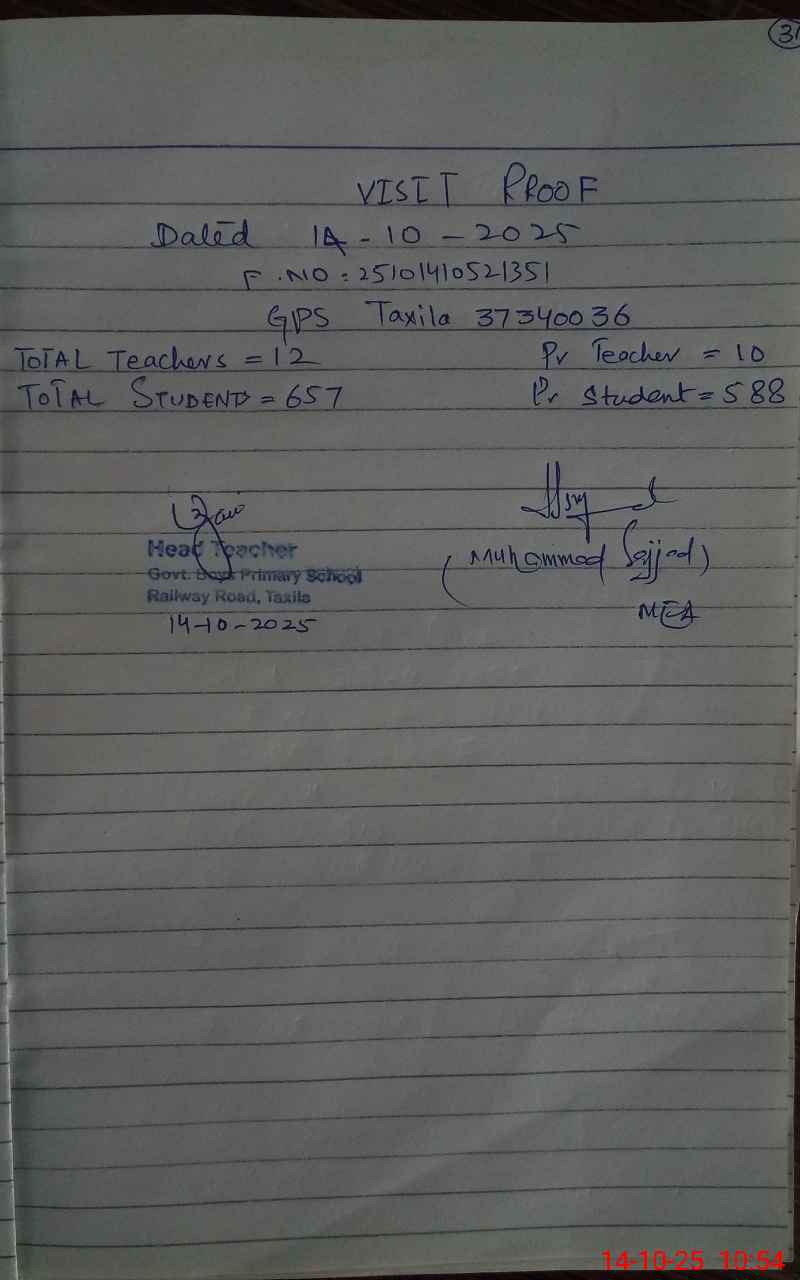 31
VISIT PROOF
Dated 14-10-2025
F.NO: 25101410521351
GPS Taxila 37340036
TOTAL Teachers = 12 Pr Teacher = 10
TOTAL STUDENTS = 657 Pr Student = 588
Head Teacher
Govt. Boys Primary School
Railway Road, Taxila
14-10-2025
(Muhammad Sajjad)
MEA
14-10-25 10:54